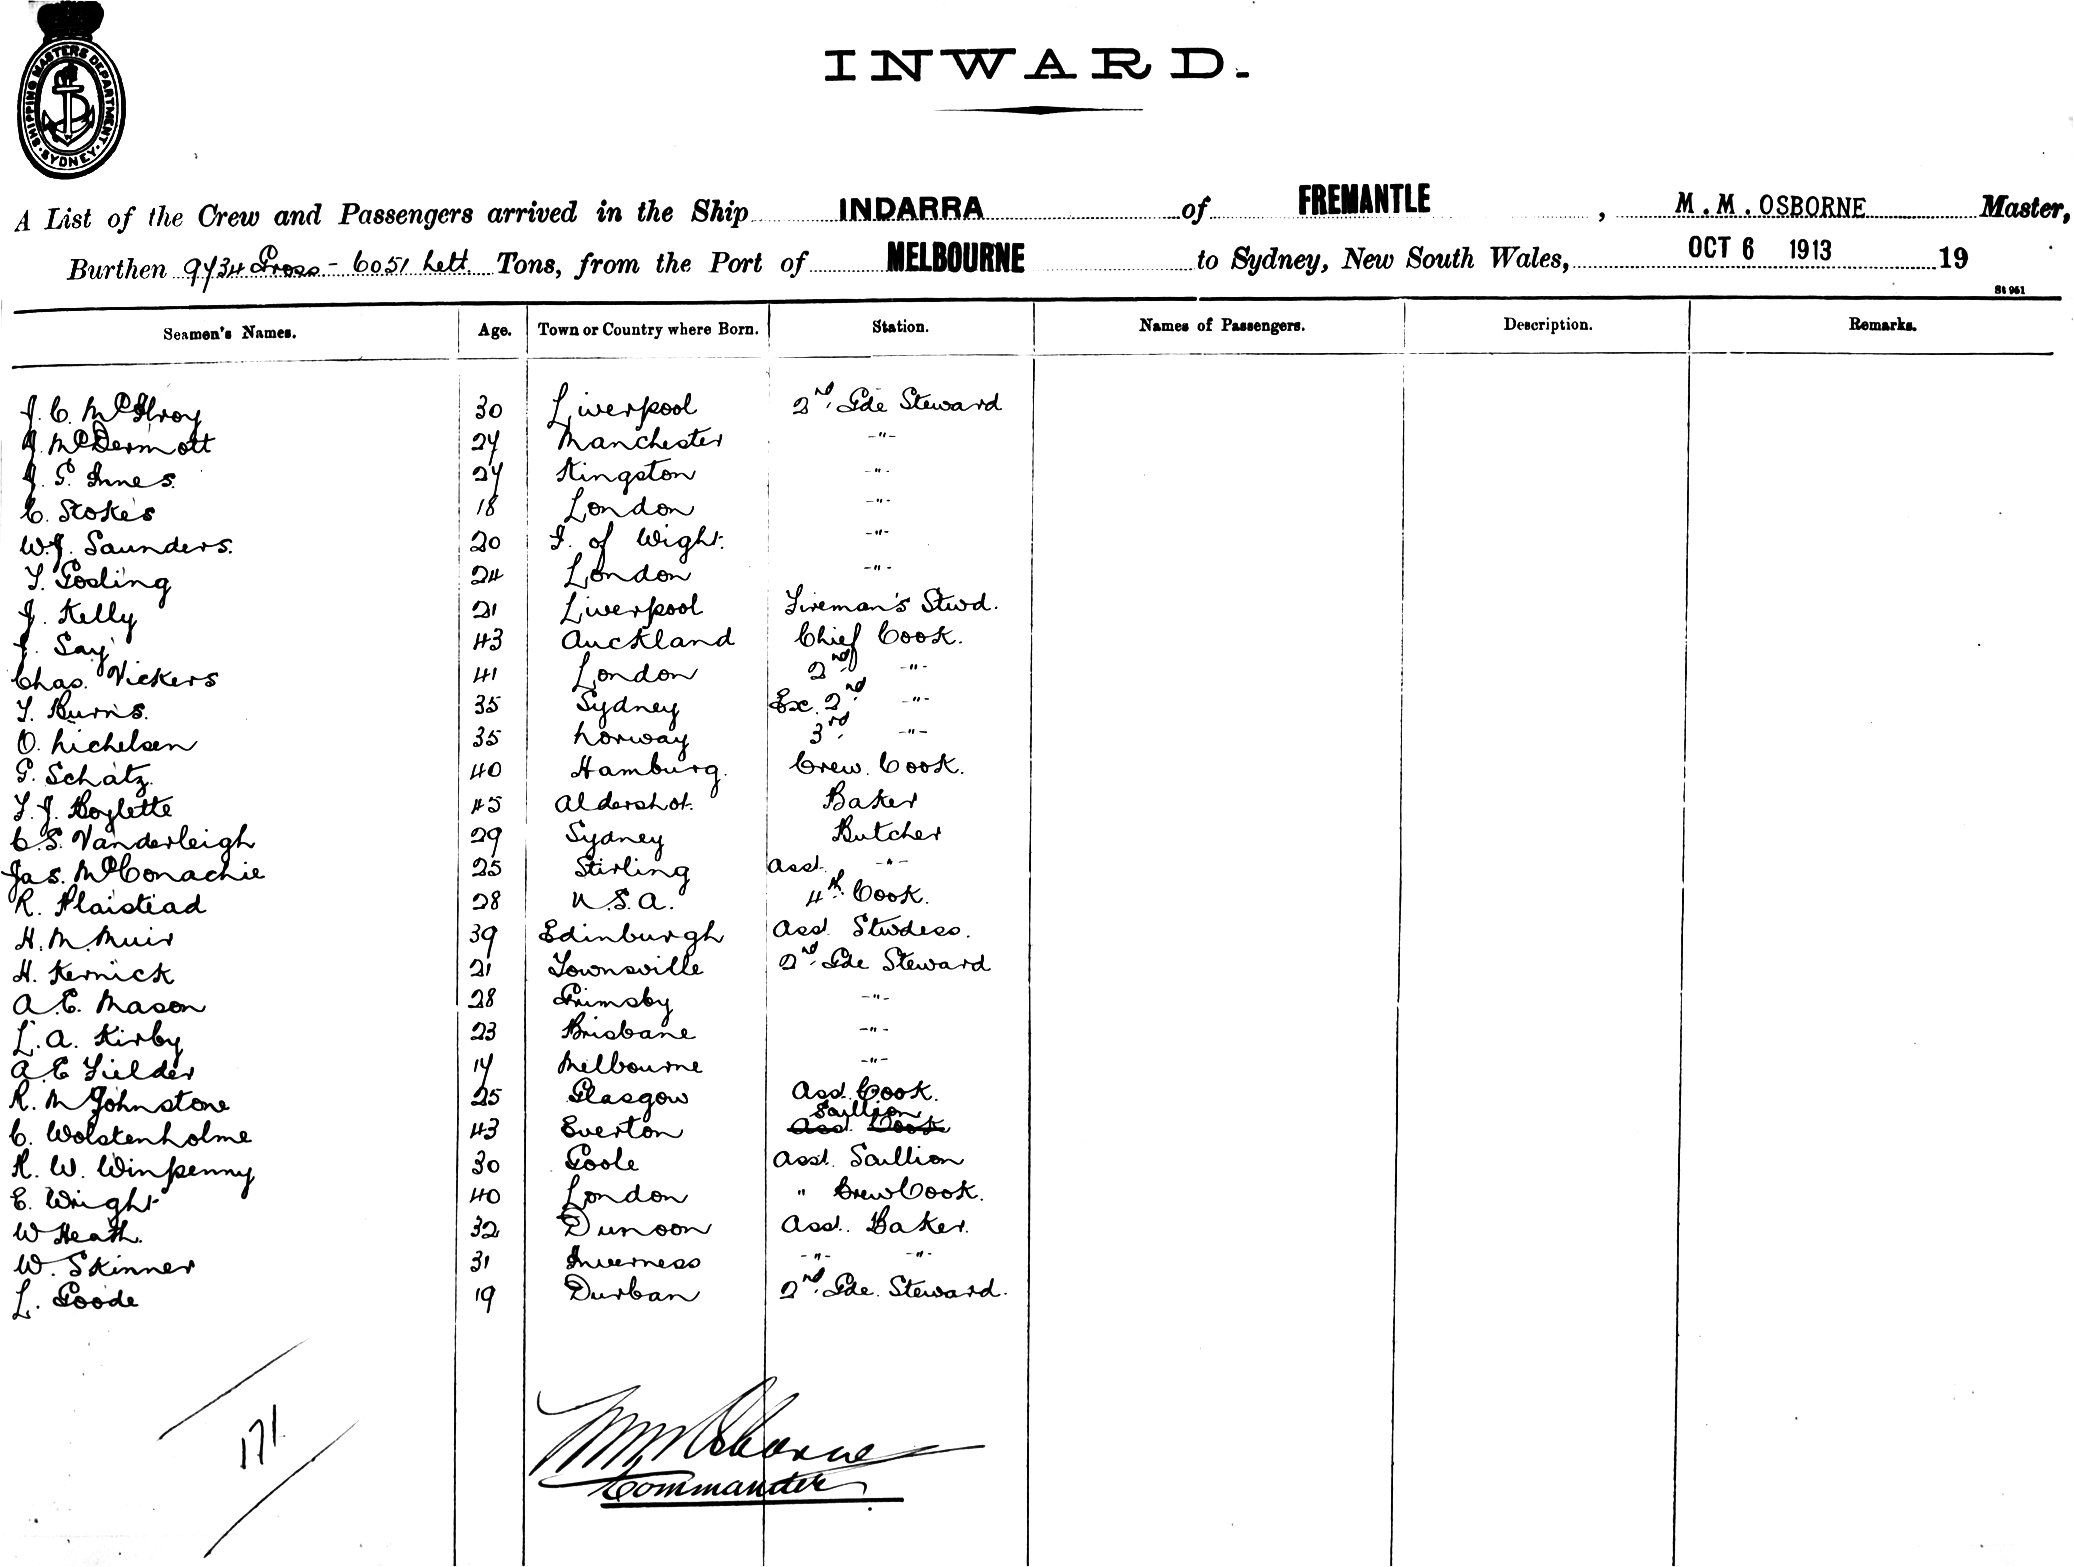 SHIPPING MASTERS DEPARTMENT. SYDNEY.
INWARD.
A List of the Crew and Passengers arrived in the Ship INDARRA of FREMANTLE, M.M. OSBORNE Master,
Burthen 9734 Gross - 6051 Nett. Tons, from the Port of MELBOURNE to Sydney, New South Wales, OCT 6 1913 19
St 961
Seamen's Names. Age. Town or Country where Born. Station. Names of Passengers. Description. Remarks.
J. C. McIlroy 30 Liverpool 2nd. Gde Steward
J. McDermott 27 Manchester -"-
J. G. Innes. 27 Kingston -"-
C. Stokes 18 London -"-
W.J. Saunders. 20 I. of Wight. -"-
T. Gosling 24 London -"-
J. Kelly 21 Liverpool Fireman's Stwd.
J. Say 43 Auckland Chief Cook.
Chas. Vickers 41 London 2nd -"-
T. Burns. 35 Sydney Ex. 2nd -"-
O. Nichelsen 35 Norway 3rd. -"-
G. Schatz. 40 Hamburg. Crew. Cook.
T. J. Boylette 45 Aldershot. Baker
C.S. Vanderleigh 29 Sydney Butcher
Jas. McConachie 25 Stirling Asst. -"-
R. Plaistead 28 U.S.A. 4th. Cook.
H. M. Muir 39 Edinburgh Asst. Stwdess.
H. Kernick 21 Townsville 2nd. Gde Steward
A. E. Mason 28 Grimsby -"-
L. A. Kirby 23 Brisbane -"-
A. E Fielder 17 Melbourne -"-
R. M Johnstone 25 Glasgow Asst. Cook.
C. Wolstenholme 43 Everton Scullion Asst. Cook
R. W. Winpenny 30 Goole Asst. Scullion
E. Wright 40 London " Crew Cook.
W Heath. 32 Dunoon Asst. Baker.
W. Skinner 31 Inverness -"- -"-
L. Goode 19 Durban 2nd. Gde. Steward.
171
M M Osborne
Commander